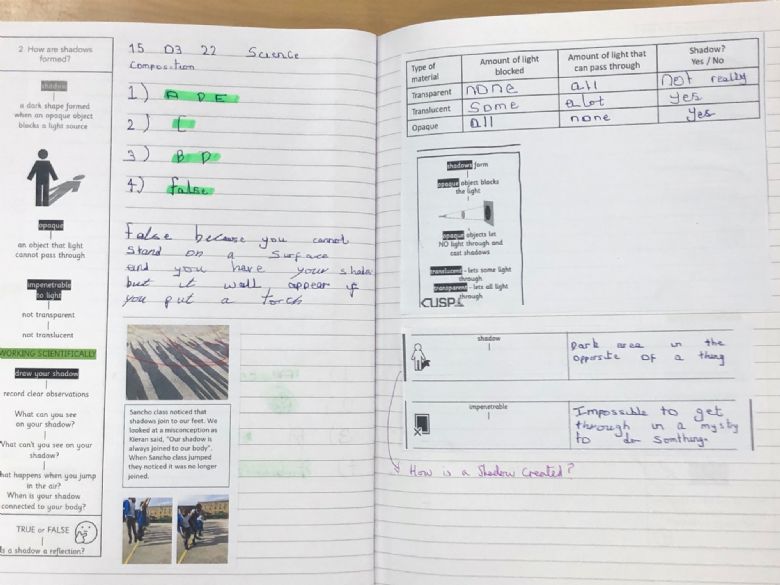 2 How are shadows
formed?
shadow
a dark shape formed
when an opaque object
blocks a light source
opaque
an object that light
cannot pass through
impenetrable
to light
not transparent
not translucent
WORKING SCIENTIFICALLY
draw your shadow
record clear observations
What can you see
on your shadow?
What can't you see on your
shadow?
hat happens when you jump
in the air?
When is your shadow
connected to your body?
TRUE or FALSE
Is a shadow a reflection?
15 03 22 Science
Composition
1) A D E
2) C
3) B D
4) false
False because you cannot
stand on a surface
and you have your shado
but it wall appear if
you put a torch
Sancho class noticed that
shadows join to our feet. We
looked at a misconception as
Kieran said, "Our shadow is
always joined to our body".
When Sancho class jumped
they noticed it was no longer
joined.
Type of material Amount of light blocked Amount of light that can pass through Shadow? Yes / No
Transparent none all not really
Translucent some alot yes
Opaque all none yes
shadows form
opaque object blocks
the light
opaque objects let
NO light through and
cast shadows
translucent - lets some light
through
transparent - lets all light
through
CUSP
shadow
Dark area in the
opposite of a thing
impenetrable
Impossible to get
through in a mystry
to do somthing.
How is a Shadow Created?